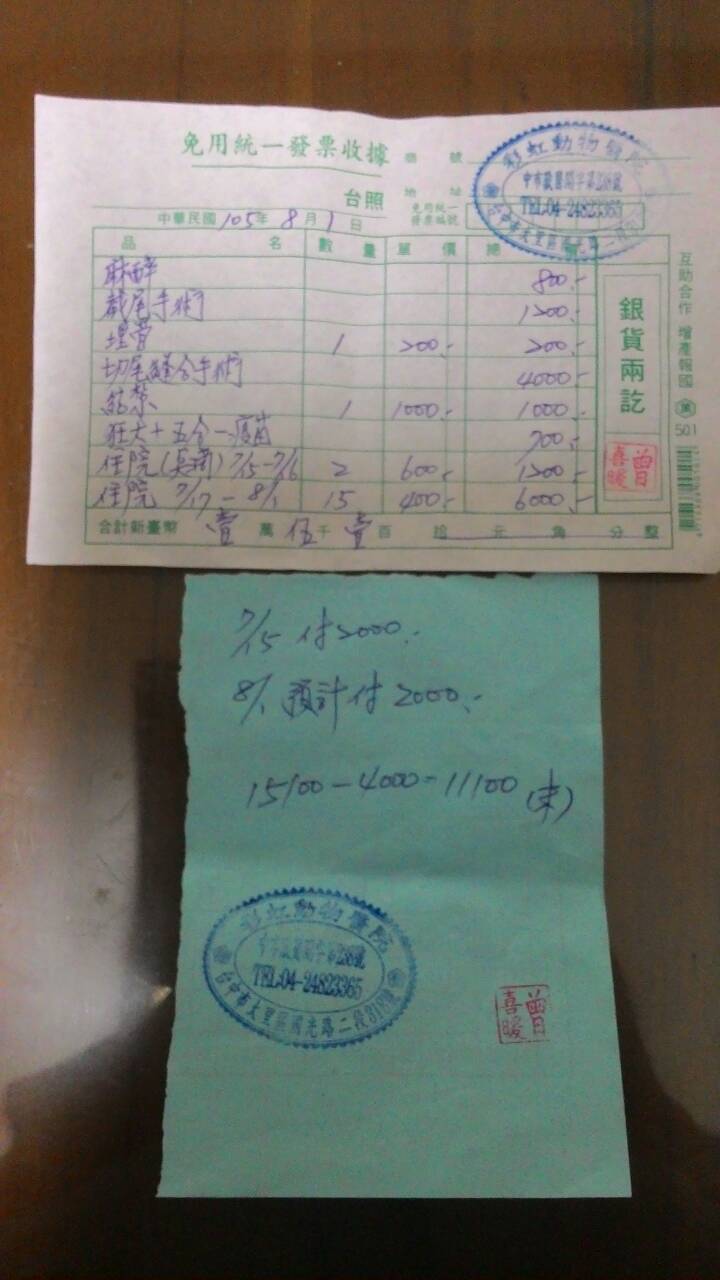 免用統一發票收據
商號
彩虹動物醫院
TEL:04-24823365
台照
地址
免用統一
發票編號
中華民國105年8月1日
品名 數量 單價 總價
麻醉 800.-
截尾手術 1200.-
埋管 1 200.- 200.-
切尾縫合手術 4000.-
結紮 1 1000.- 1000.-
狂犬+五合一疫苗 700.-
住院(美容) 7/15-7/16 2 600.- 1200.-
住院 7/17-8/1 15 400.- 6000.-
合計新臺幣 壹萬伍千壹百拾元角分整
銀貨兩訖
曾喜暖
互助合作 增產報國
萬
501
7/15 付2000.-
8/1 預計付2000.-
15100-4000=11100(未)
彩虹動物醫院
TEL:04-24823365
台中市大里區國光路二段319號
曾喜暖